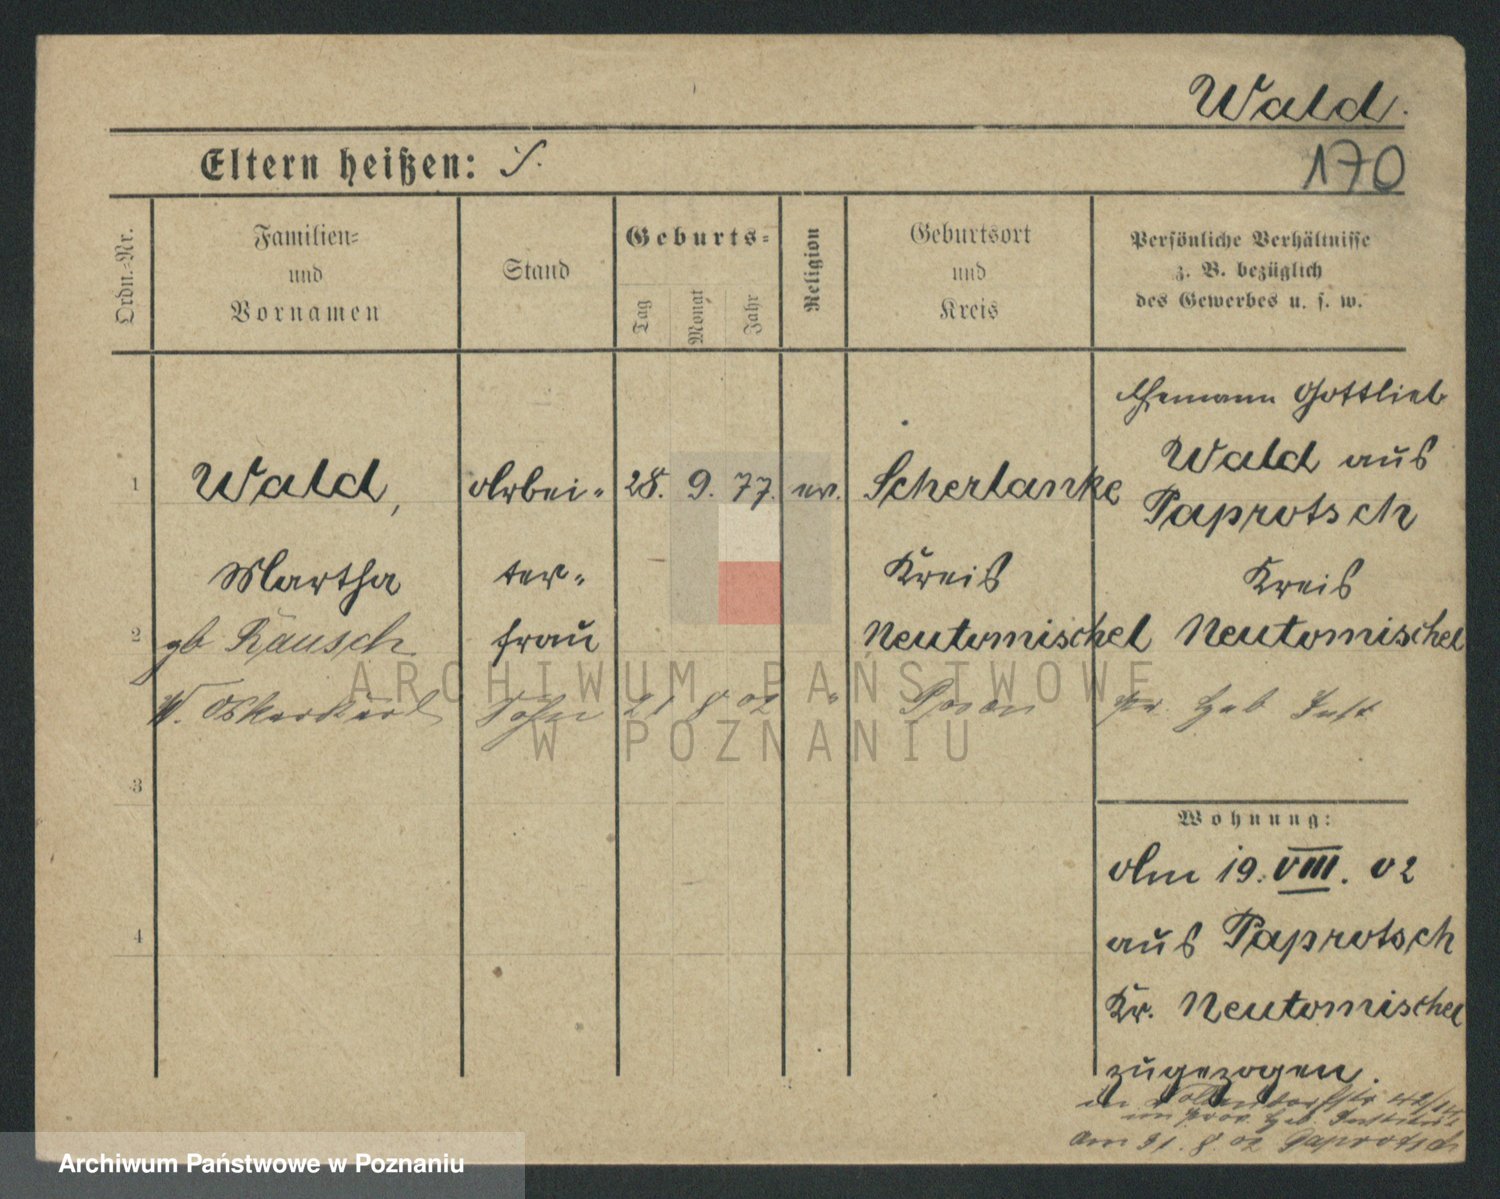 Wald.
Eltern heißen: S.
170
Ordn.-Nr.
Familien-
und
Vornamen
Stand
Geburts-
Tag
Monat
Jahr
Religion
Geburtsort
und
Kreis
Persönliche Verhältnisse
z. B. bezüglich
des Gewerbes u. s. w.
Ehemann Gottlieb
Wald aus
Paprotsch
Kreis
Neutomischel
1 Wald, Arbei- 28. 9. 77. ev. Scherlanke
Martha ter- Kreis
2 gb Rausch frau Neutomischel
W. Oskar Kurt Sohn 21 8 02 " Posen pr. Heb Inst
ARCHIWUM PAŃSTWOWE
W POZNANIU
3
Wohnung:
Am 19. VIII. 02
4
aus Paprotsch
Kr. Neutomischel
zugezogen.
in 42/44
im Prov. Heb. Institut
am 31. 8. 02 Paprotsch
Archiwum Państwowe w Poznaniu